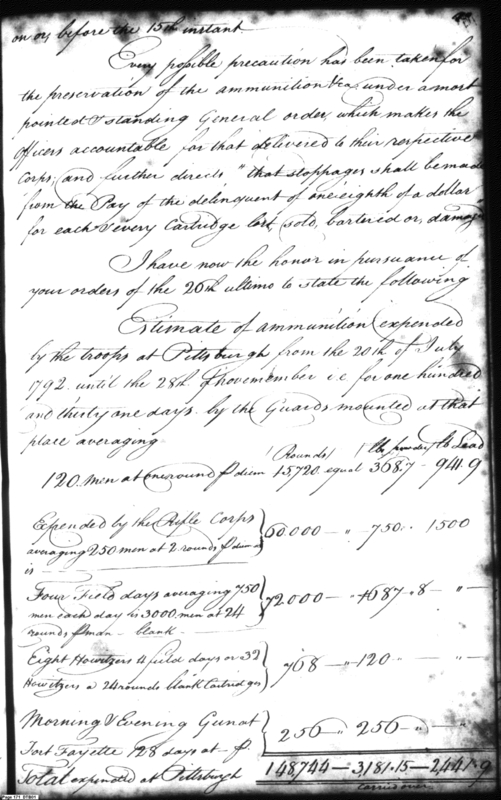 on or before the 15th instant.
Every possible precaution has been taken for
the preservation of the ammunition &ca. under a most
pointed & standing General order, which makes the
officers accountable for that delivered to their respective
Corps, and further directs "that stoppages shall be made
from the Pay of the delinquent of one eighth of a dollar
for each & every Cartridge lost, sold, bartered or damaged"
I have now the honor in pursuance of
your orders of the 20th ultimo to state the following
Estimate of ammunition expended
by the troops at Pittsburgh from the 20th of July
1792 until the 28th of Novemember i.e for one hundred
and thirty one days. by the Guards mounted at that
place averaging
Rounds lbs powder lb Lead
120. men at one round pr diem 15,720. equal 368.7 - 941.9
Expended by the Rifle Corps
averaging 250 men at 2 rounds pr diem
is 60.000 - " 750 .. 1500
Four Field days averaging 750
men each day is 3000 men at 24
rounds pr man - blank - 72000 - 1687.8 - " -
Eight Howitzers 4 field days or 32
Howitzers a 24 rounds blank Cartridges 768 - " 120 .. "
Morning & Evening Gun at
Fort Fayette 128 days at - pr 256 - " 256 - " -
Total expended at Pittsburgh 148,744 - 3,181.15 - 2,441.9
carried over